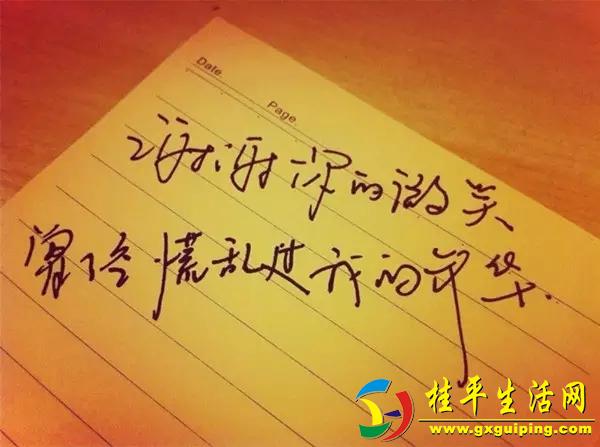 Date
Page
谢谢你的微笑
曾经慌乱过我的年华.
桂平生活网
www.gxguiping.com